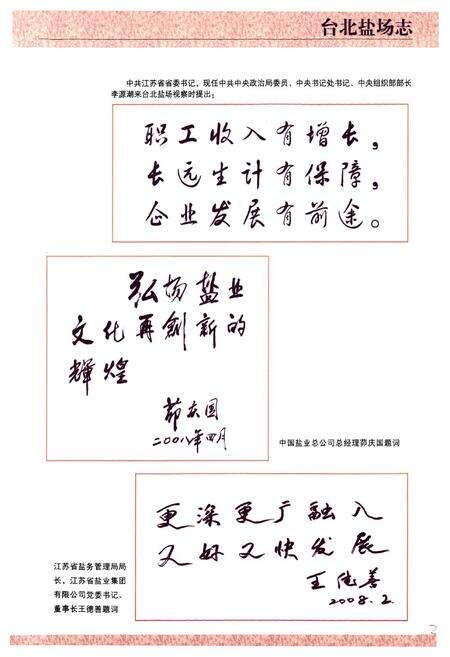 台北盐场志
中共江苏省省委书记，现任中共中央政治局委员、中央书记处书记、中央组织部部长
李源潮来台北盐场视察时提出：
职工收入有增长，
长远生计有保障，
企业发展有前途。
弘扬盐业
文化再創新的
輝煌
茆庆国
二〇〇八年四月
中国盐业总公司总经理茆庆国题词
更深更广融入
又好又快发展
王德善
2008.2.
江苏省盐务管理局局
长，江苏省盐业集团
有限公司党委书记、
董事长王德善题词